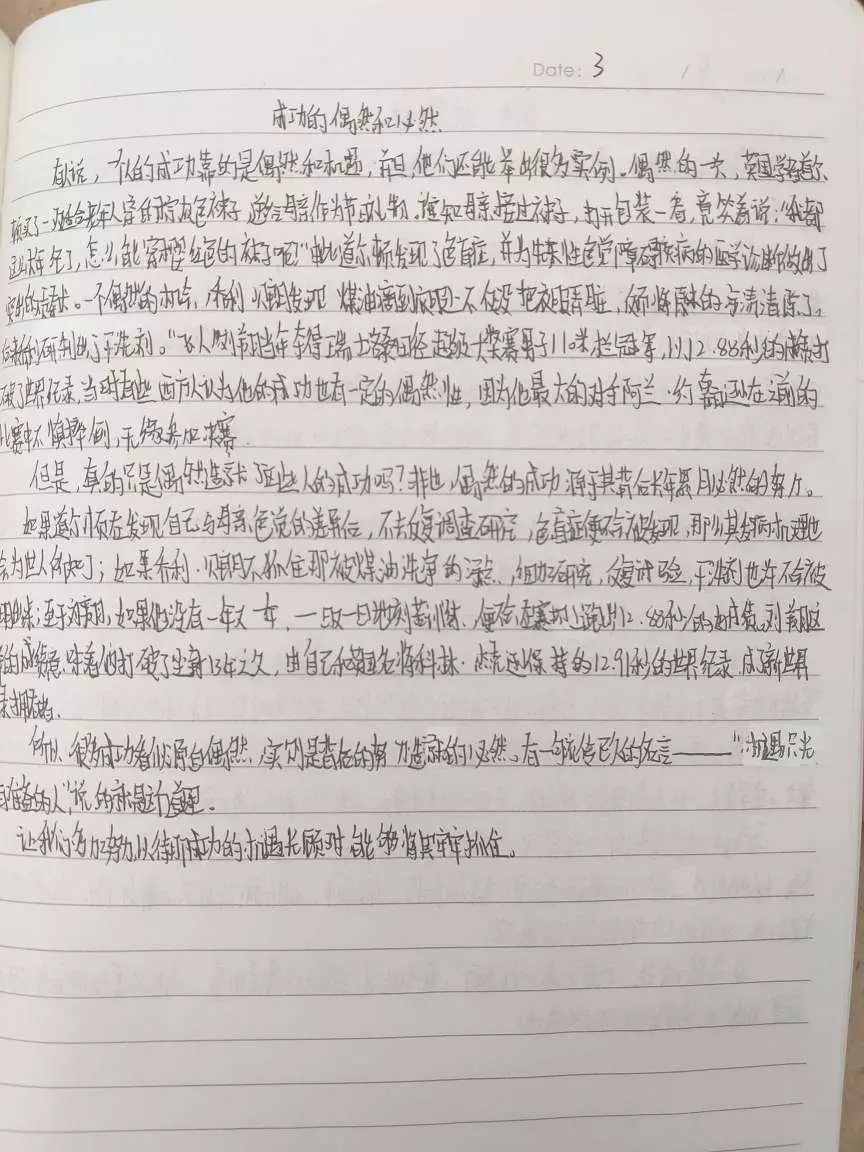 Date: 3
成功的偶然和必然
有人说,一个人的成功靠的是偶然和机遇,并且,他们还能举出很多实例。偶然的一次,英国学者道尔
顿买了一双适合老年人穿的棕灰色袜子,送给母亲作为节日礼物。谁知母亲接过袜子,打开包装一看,竟笑着说:“我都
这么大年纪了,怎么能穿樱红色的袜子呢?”由此道尔顿发现了色盲症,并为先天性色觉障碍疾病的医学诊断做出了
一个偶然的机会,乔利·贝朗发现煤油滴到衣服上不仅没把衣服弄脏,反而将原来的污渍清除了,
研制出了干洗剂。“飞人”刘翔当年夺得瑞士洛桑田径超级大奖赛男子110米栏冠军,以12.88秒的成绩打
破了世界纪录,当时有些西方人认为他的成功也有一定的偶然性,因为他最大的对手阿兰·约翰逊在之前的
比赛中不慎摔倒,无缘参加决赛.
但是,真的只是偶然造就了这些人的成功吗?非也,偶然的成功源于其背后长年累月必然的努力。
如果道尔顿在发现自己与母亲色觉的差异后,不去反复调查研究,色盲症便不会被发现,那么其发病机理也
会为世人所知了;如果乔利·贝朗不抓住那被煤油洗净的污点,细加研究,反复试验,干洗剂也许不会被
至于刘翔,如果他没有一年又一年,一日又一日地刻苦训练,便不会在赛场上跑出12.88秒的好成绩。刘翔这
的成绩意味着他打破了尘封13年之久,由自己和英国名将科林·杰克逊保持的12.91秒的世界纪录,成了新世界
所以,很多成功看似源自偶然,实则是背后的努力造就的必然。有一句流传已久的名言——“机遇只光
有准备的人”,说的就是这个道理。
让我们多加努力,以待那成功的机遇光顾时,能够将其牢牢抓住。